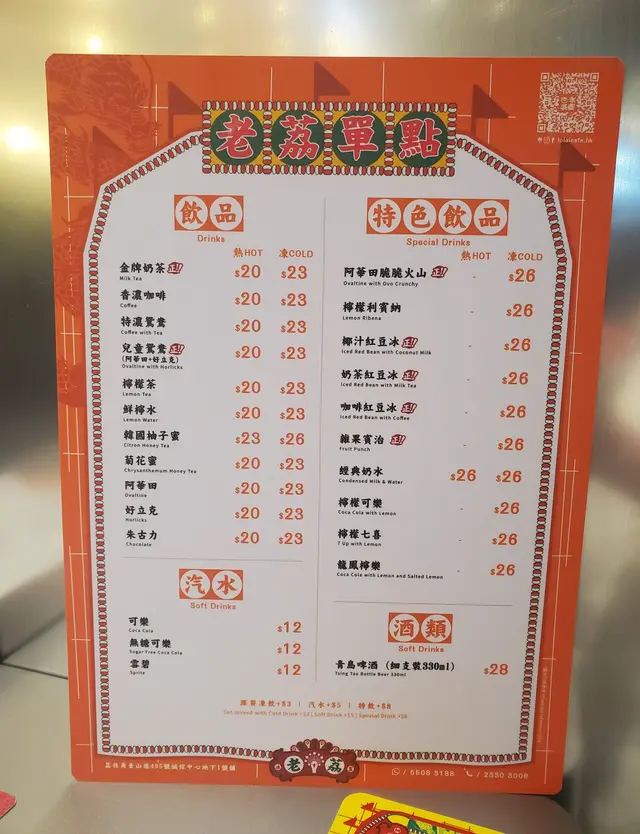 老荔單點
lolaicafe.hk
飲品
Drinks
熱HOT 凍COLD
金牌奶茶 正! $20 $23
Milk Tea
香濃咖啡 $20 $23
Coffee
特濃鴛鴦 $20 $23
Coffee with Tea
兒童鴛鴦 正! $20 $23
(阿華田+好立克)
Ovaltine with Horlicks
檸檬茶 $20 $23
Lemon Tea
鮮檸水 $20 $23
Lemon Water
韓國柚子蜜 $23 $26
Citron Honey Tea
菊花蜜 $20 $23
Chrysanthemum Honey Tea
阿華田 $20 $23
Ovaltine
好立克 $20 $23
Horlicks
朱古力 $20 $23
Chocolate
汽水
Soft Drinks
可樂 $12
Coca Cola
無糖可樂 $12
Sugar Free Coca Cola
雪碧 $12
Sprite
特色飲品
Special Drinks
熱HOT 凍COLD
阿華田脆脆火山 正! - $26
Ovaltine with Ovo Crunchy
檸檬利賓納 - $26
Lemon Ribena
椰汁紅豆冰 正! - $26
Iced Red Bean with Coconut Milk
奶茶紅豆冰 正! - $26
Iced Red Bean with Milk Tea
咖啡紅豆冰 正! - $26
Iced Red Bean with Coffee
雜果賓治 正! - $26
Fruit Punch
經典奶水 $26 $26
Condensed Milk & Water
檸檬可樂 - $26
Coca Cola with Lemon
檸檬七喜 - $26
7 Up with Lemon
龍鳳檸樂 - $26
Coca Cola with Lemon and Salted Lemon
酒類
Soft Drinks
青島啤酒 (細支裝330ml) $28
Tsing Tao Bottle Beer 330ml
跟餐凍飲+$3 | 汽水+$5 | 特飲+$8
Set served with Cold Drink +$3 | Soft Drink +$5 | Special Drink +$8
老荔
荔枝角青山道495號誠信中心地下1號舖
5506 3188 / 2330 3008